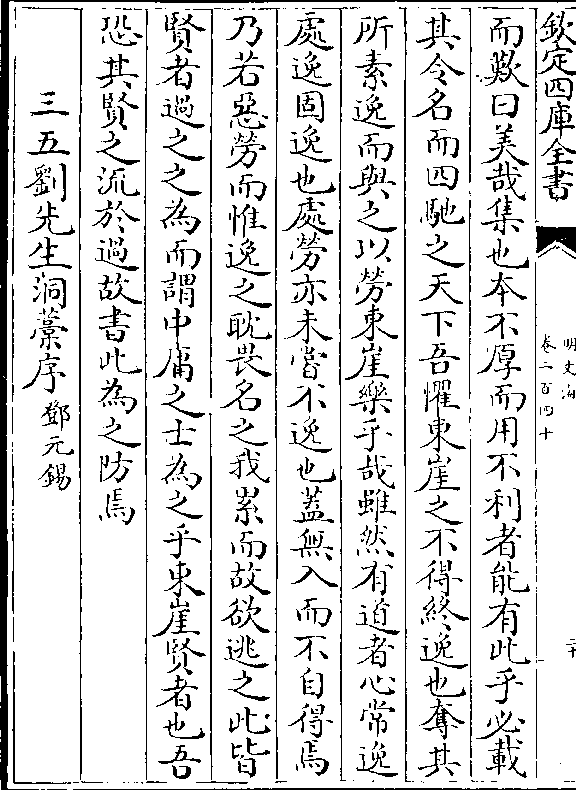 欽定四庫全書
明文海
卷二百四十
二十
而歎曰美哉集也本不厚而用不利者能有此乎必載
其令名而四馳之天下吾懼東崖之不得終逸也奪其
所素逸而與之以勞東崖樂乎哉雖然有道者心常逸
處逸固逸也處勞亦未嘗不逸也蓋無入而不自得焉
乃若惡勞而惟逸之耽畏名之我累而故欲逃之此皆
賢者過之之為而謂中庸之士為之乎東崖賢者也吾
恐其賢之流於過故書此為之防焉
三五劉先生洞藁序 鄧元錫